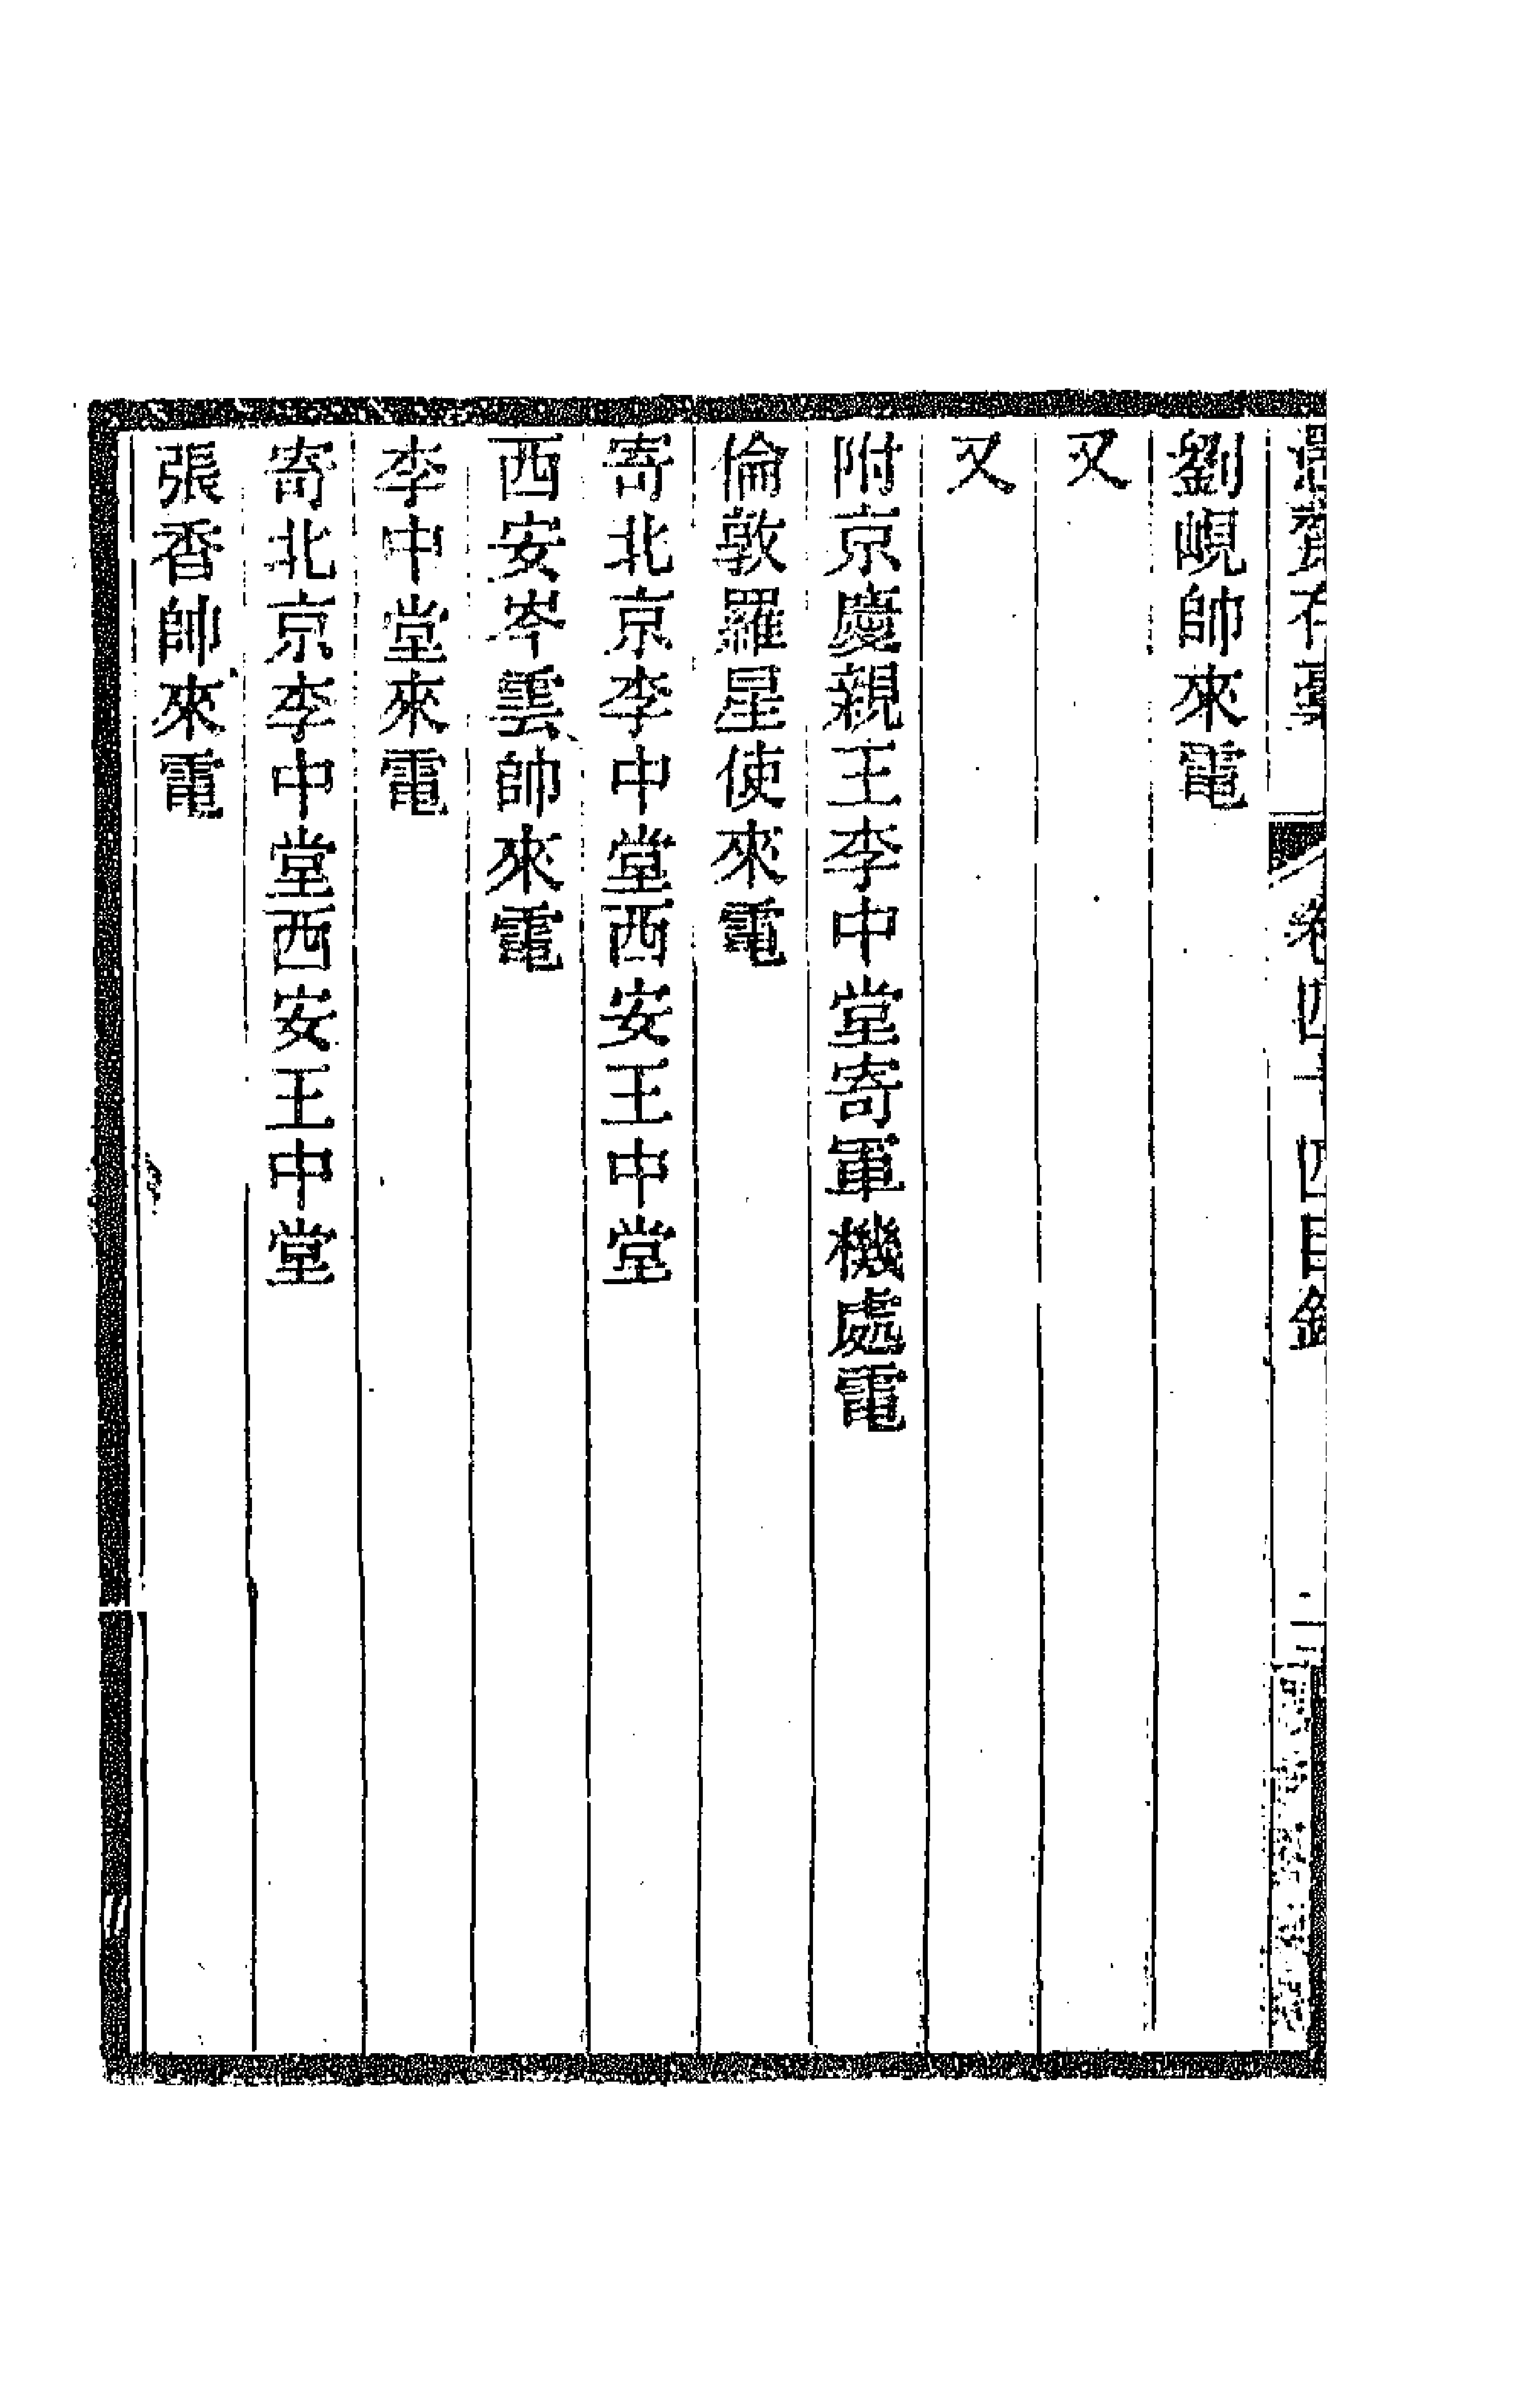 愚齋存藁 卷四十四目錄 二
劉峴帥來電
又
又
附京慶親王李中堂寄軍機處電
倫敦羅星使來電
寄北京李中堂西安王中堂
西安岑雲帥來電
李中堂來電
寄北京李中堂西安王中堂
張香帥來電